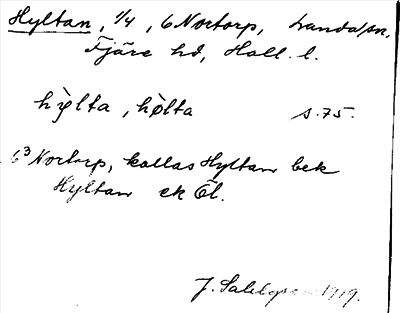 Hyltan, 1/4, 6 Nortorp, Landa sn,
Fjäre hd, Hall. l.
hy̆lta, hø̀lta s. 75.
6³ Nortorp, kallas Hyltan bek
Hyltan ek Öl.
J. Sahlgren 1919.